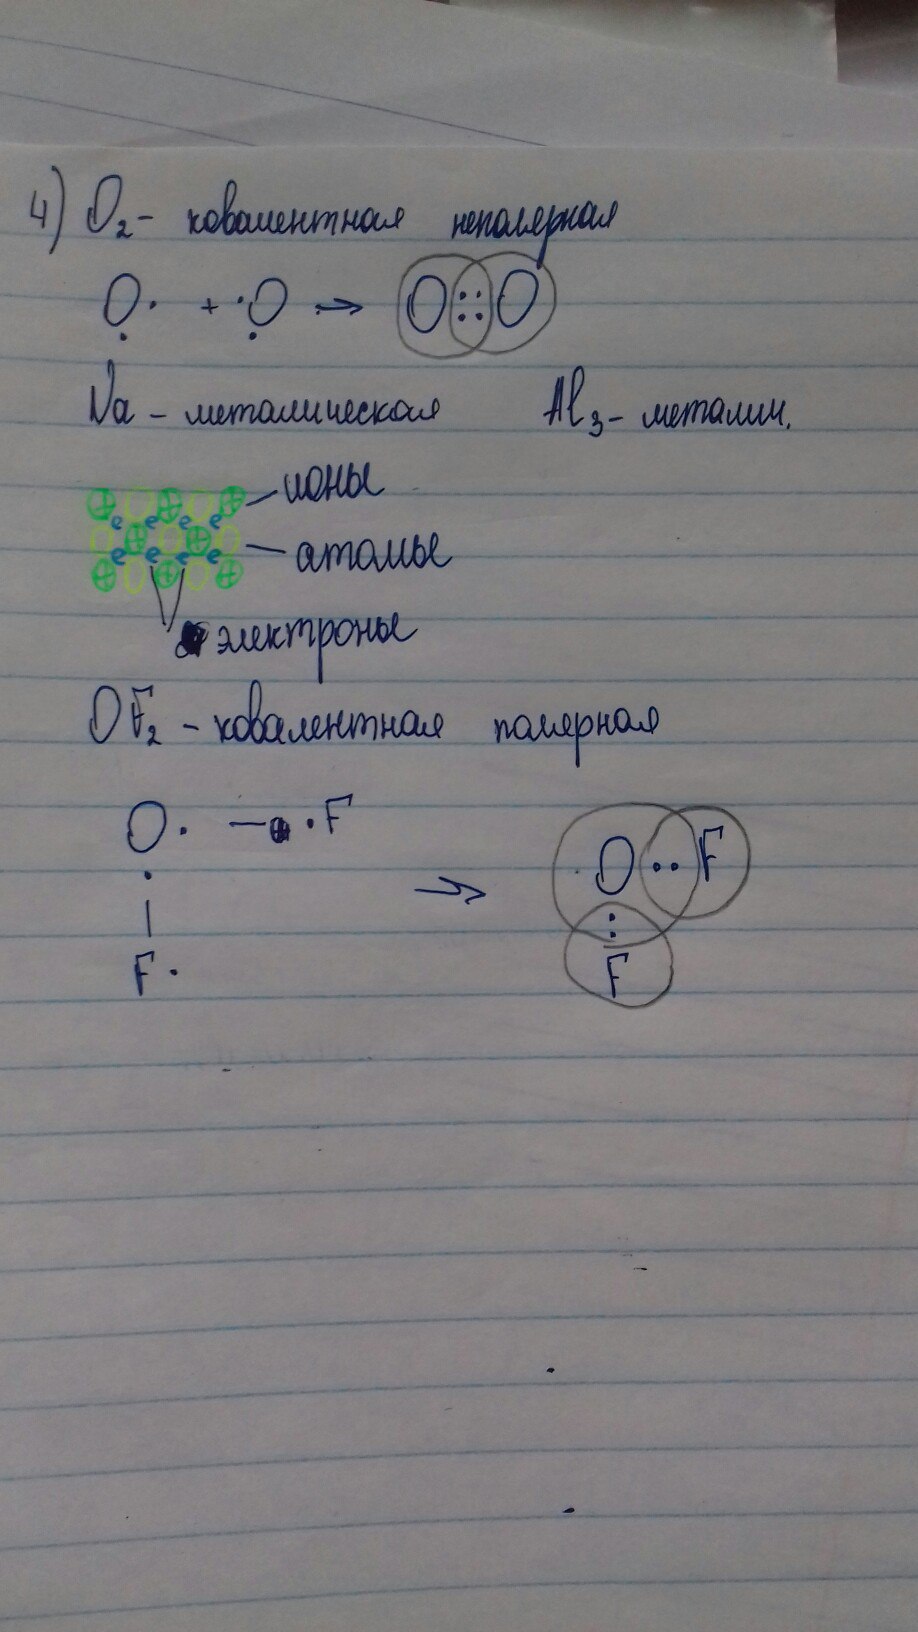 4) O₂ - ковалентная неполярная
O· + ·O → O::O
Na - металическая Al₃ - металич.
ионы
атомы
электроны
OF₂ - ковалентная полярная
O· — ·F
→ O··F
F· F